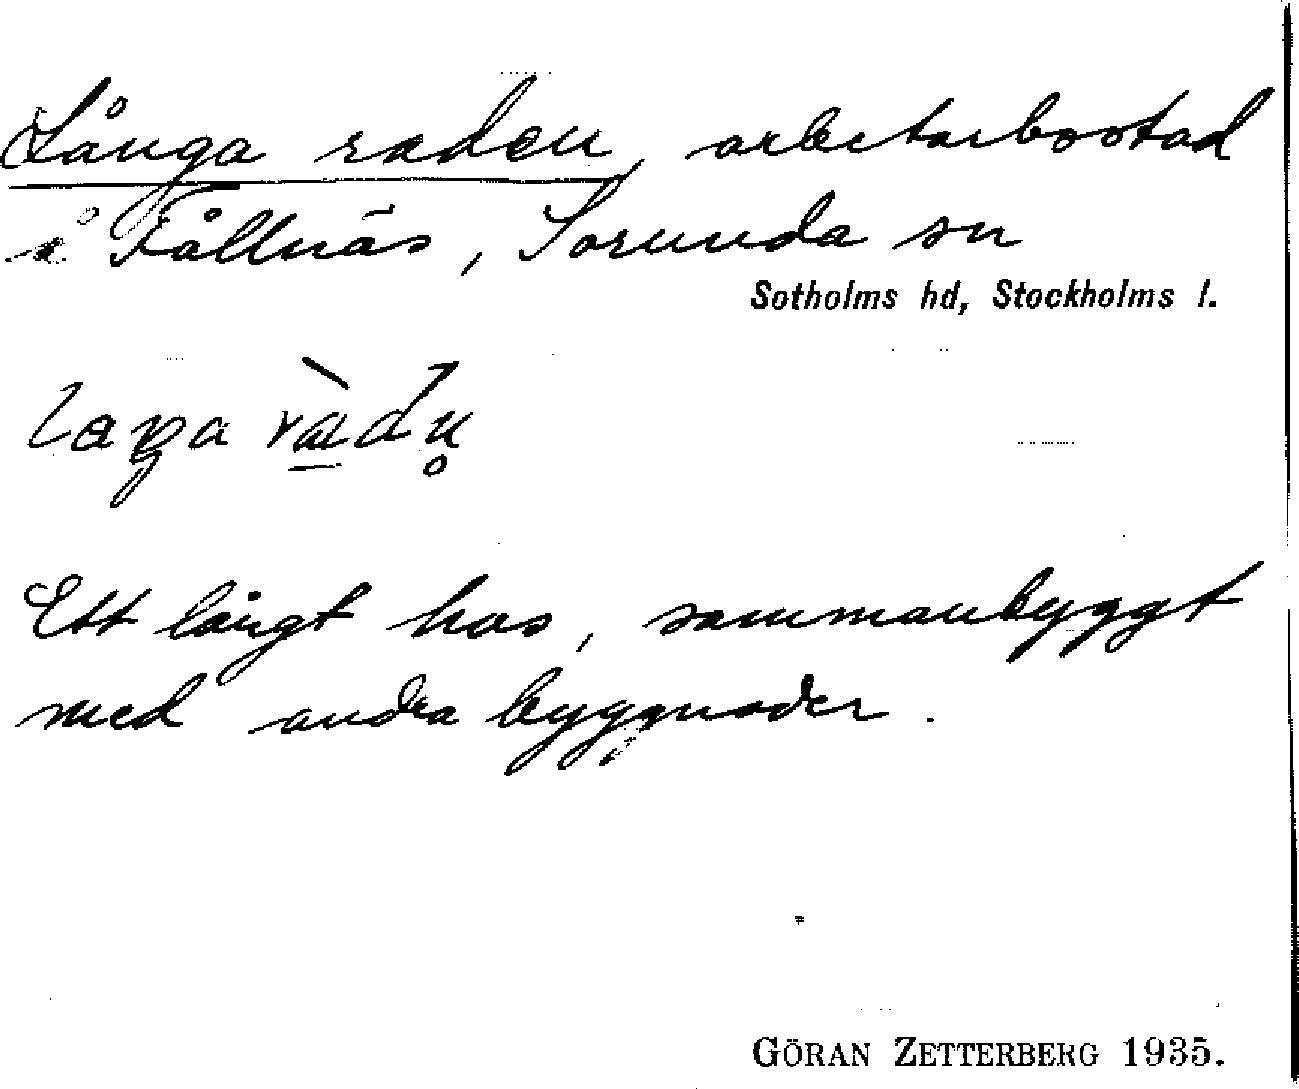 Långa raden, arbetarbostad
å Fållnäs, Sorunda sn
Sotholms hd, Stockholms l.
Ett långt hus, sammanbyggt
med andra byggnader.
GÖRAN ZETTERBERG 1935.